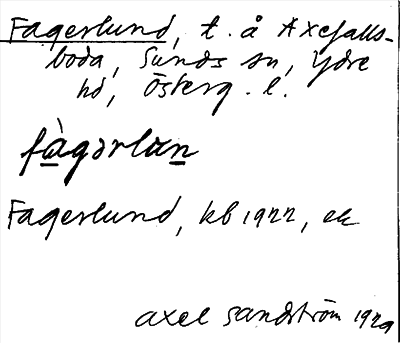 Fagerlund, t. å Axefalls-
boda, Sunds sn, Ydre
hd, Österg. l.
fàgərlun
Fagerlund, kb 1922, ek
Axel Sandström 1929